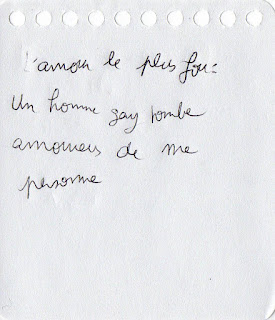 L'amour le plus fou:
Un homme gay tombe
amoureux de me
personne